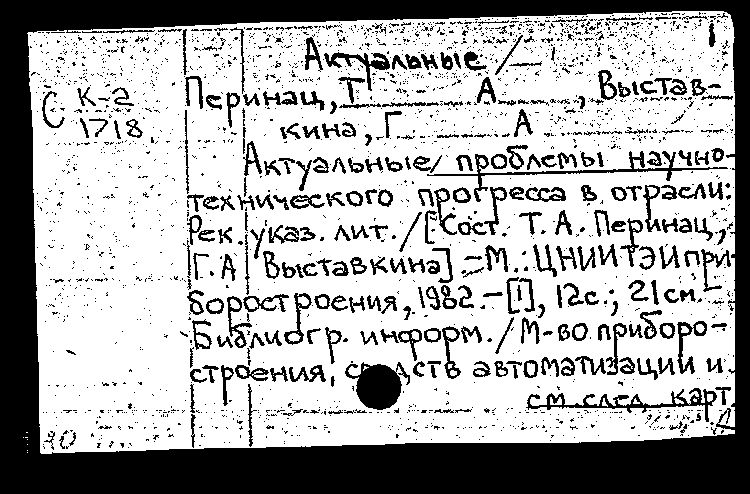 1
Актуальные /
С К-2
1718
Перинац, Т А , Выстав-
кина, Г А
Актуальные/ проблемы научно-
технического прогресса в отрасли:
Рек. указ. лит. / [Сост. Т. А. Перинац,
Г. А. Выставкина] = М.: ЦНИИТЭИ при-
боростроения, 1982. – [1], 12с.; 21см. –
(Библиогр. информ. / М-во приборо-
строения, средств автоматизации и
см. след. карт.